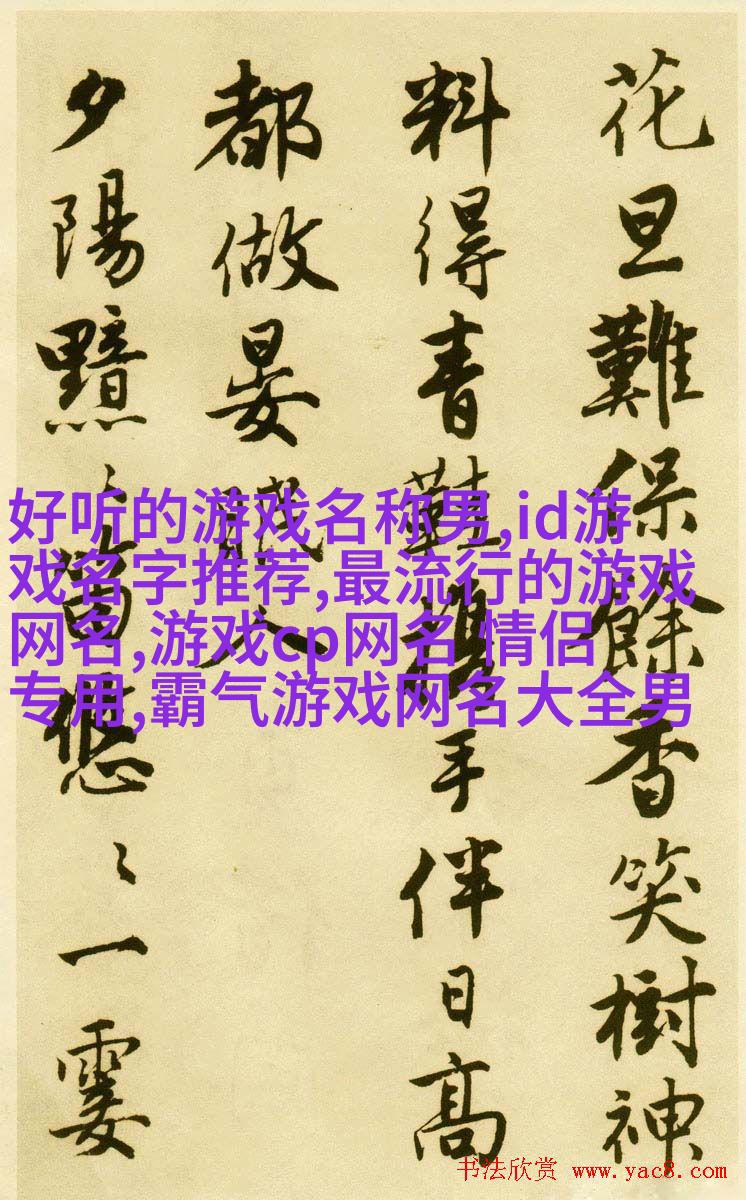 花旦難保餘香笑樹神
料得青鞋攜手伴日高
都做晏眠人
夕陽黯〻笛悠〻一霎
好听的游戏名称男,id游
戏名字推荐,最流行的游戏
网名,游戏cp网名 情侣
专用,霸气游戏网名大全男
书法欣赏 www.yac8.com